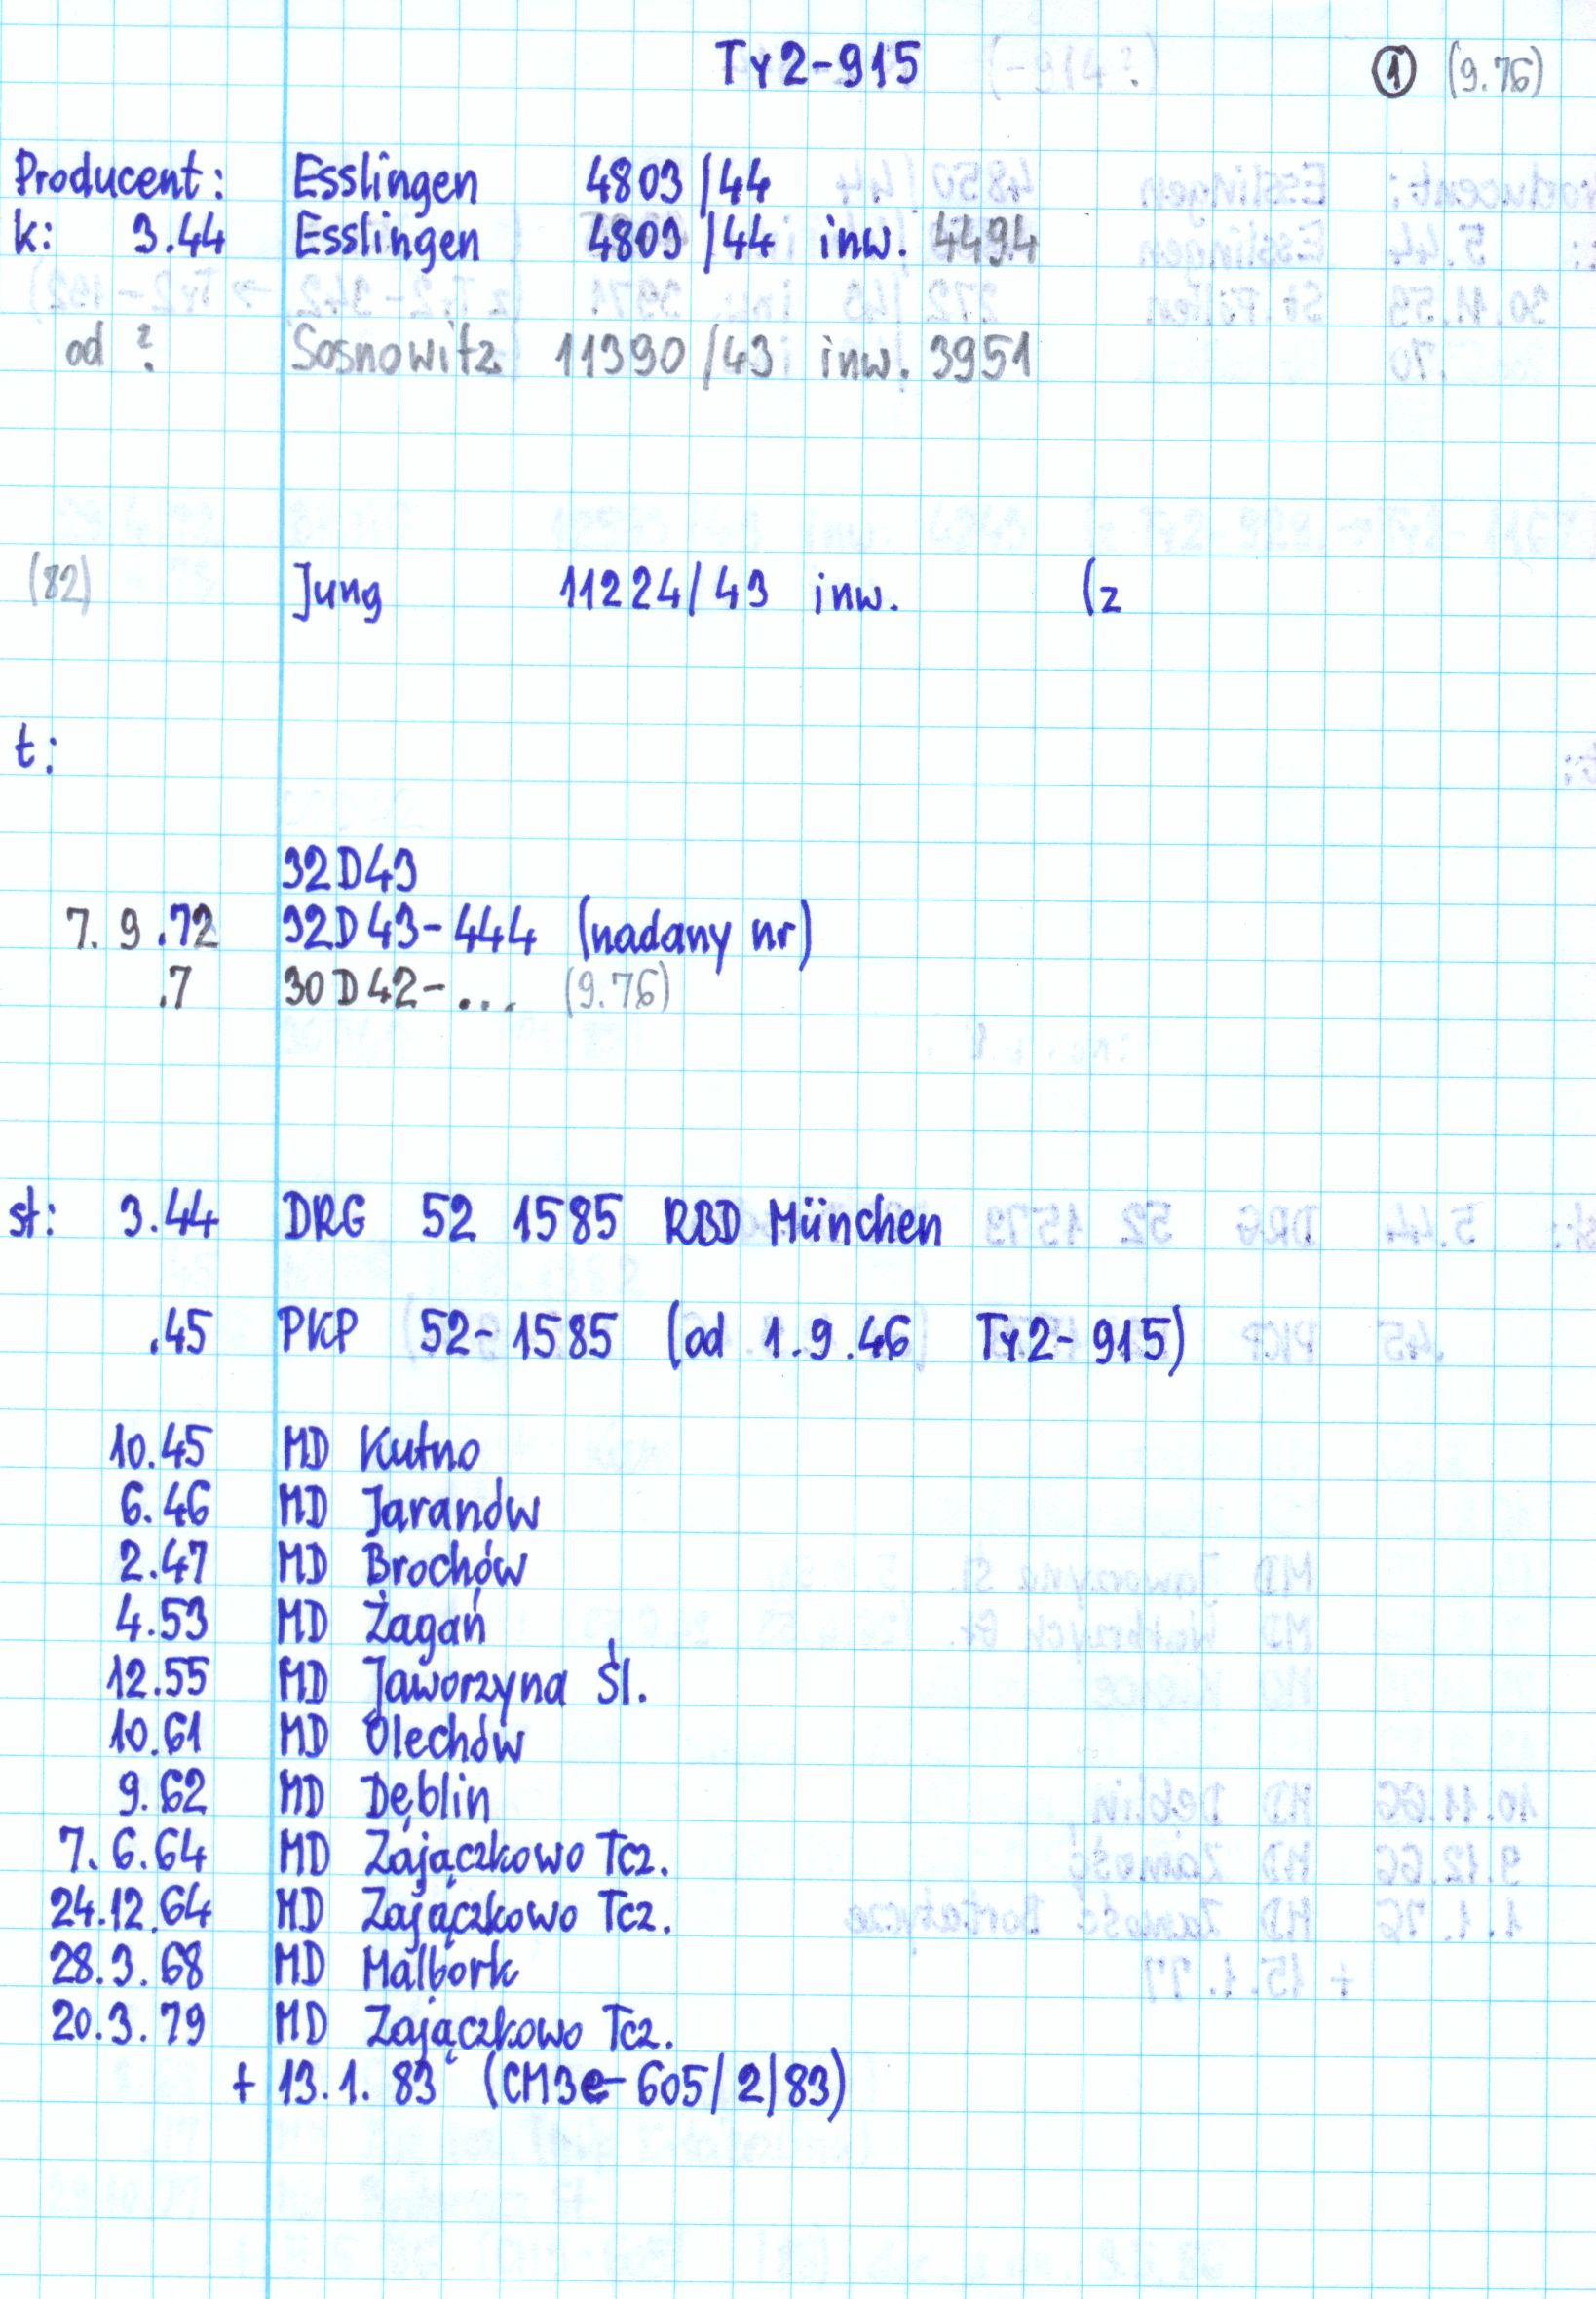 Ty2-915 ① (9.76)
Producent: Esslingen 4803/44
k: 3.44 Esslingen 4803/44 inw. 4494
od ? Sosnowitz 11390/43 inw. 3951
(82) Jung 11224/43 inw. (z
t:
32D43
7.9.72 32D43-444 (nadany nr)
.7 30D42-... (9.76)
st: 3.44 DRG 52 1585 RBD München
.45 PKP 52-1585 (od 1.9.46 Ty2-915)
10.45 MD Kutno
6.46 MD Jaranów
2.47 MD Brochów
4.53 MD Żagań
12.55 MD Jaworzyna Śl.
10.61 MD Olechów
9.62 MD Dęblin
7.6.64 MD Zajączkowo Tcz.
24.12.64 MD Zajączkowo Tcz.
28.3.68 MD Malbork
20.3.79 MD Zajączkowo Tcz.
+ 13.1.83 (CM3e-605/2/83)